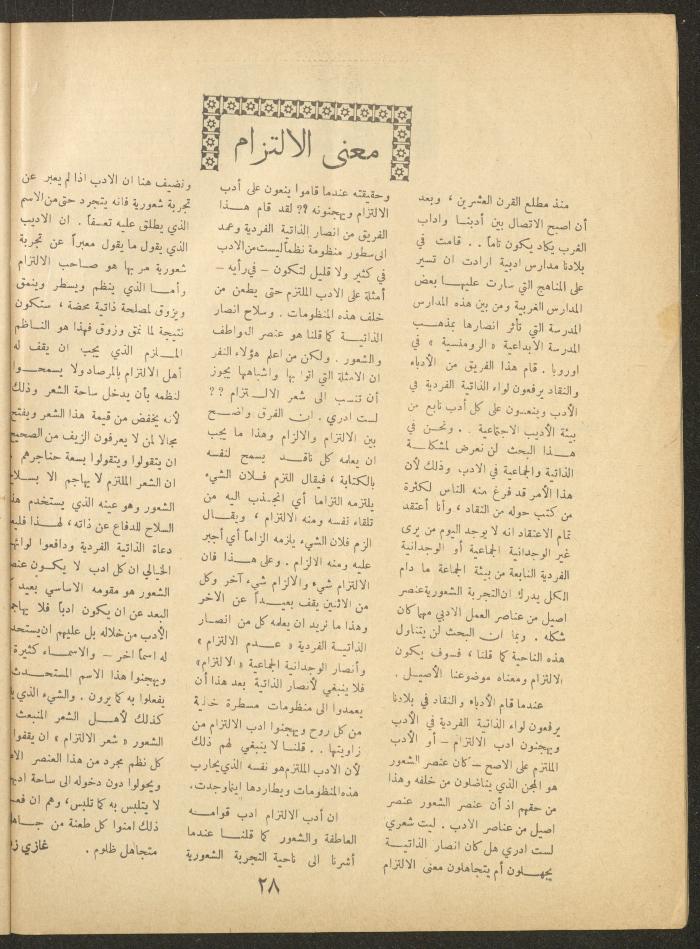 معنى الالتزام
منذ مطلع القرن العشرين ، وبعد
أن اصبح الاتصال بين أدبنا واداب
الغرب يكاد يكون تاماً . . قامت في
بلادنا مدارس ادبية ارادت ان تسير
على المناهج التي سارت عليها بعض
المدارس الغربية ومن بين هذه المدارس
المدرسة التي تأثر انصارها بمذهب
المدرسة الأبداعية « الرومنسية » في
اوروبا . قام هذا الفريق من الأدباء
والنقاد يرفعون لواء الذاتية الفردية في
الأدب وينعون على كل أدب نابع من
بيئة الأديب الاجتماعية . . ونحن في
هذا البحث لن نعرض لمشكلة
الذاتية والجماعية في الادب وذلك لأن
هذا الأمر قد فرغ منه الناس لكثرة
من كتب حوله من النقاد ، وأنا أعتقد
تمام الاعتقاد انه لا يوجد اليوم من يرى
غير الوجدانية الجماعية أو الوجدانية
الفردية النابعة من بيئة الجماعة ما دام
الكل يدرك ان التجربة الشعورية عنصر
اصيل من عناصر العمل الادبي مهما كان
شكله . وبما ان البحث لن يتناول
هذه الناحية كما قلنا ، فسوف يكون
الالتزام ومعناه موضوعنا الأصيل .
عندما قام الأدباء والنقاد في بلادنا
يرفعون لواء الذاتية الفردية في الأدب
ويهجنون ادب الالتزام – أو الأدب
الملتزم على الاصح – كان عنصر الشعور
هو المجن الذي يناضلون من خلفه وهذا
من حقهم اذ أن عنصر الشعور عنصر
اصيل من عناصر الادب . ليت شعري
لست ادري هل كان انصار الذاتية
يجهلون أم يتجاهلون معنى الالتزام
وحقيقته عندما قاموا ينعون على أدب
الالتزام ويهجنونه ؟؟ لقد قام هذا
الفريق من انصار الذاتية الفردية وعمد
الى سطور منظومة نظماً ليست من الادب
في كثير ولا قليل لتكون – في رأيه –
أمثلة على الادب الملتزم حتى يطعن من
خلف هذه المنظومات . وسلاح انصار
الذاتية كما قلنا هو عنصر العواطف
والشعور . ولكن من اعلم هؤلاء النفر
ان الامثلة التي اتوا بها واشباهها يجوز
أن تنسب الى شعر الالتزام ؟؟
لست ادري . ان الفرق واضح
بين الالتزام والالزام وهذا ما يجب
ان يعلمه كل ناقد يسمح لنفسه
بالكتابة ، فيقال التزم فلان الشيء
يلتزمه التزاما أي انجذب اليه من
تلقاء نفسه ومنه الالتزام ، ويقال
الزم فلان الشيء يلزمه الزاماً أي أجبر
عليه ومنه الالزام . وعلى هذا فان
الالتزام شيء والالزام شيء آخر وكل
من الاثنين يقف بعيداً عن الآخر
وهذا ما نريد ان يعلمه كل من انصار
الذاتية الفردية « عدم الالتزام »
وأنصار الوجدانية الجماعية « الالتزام»
فلا ينبغي لأنصار الذاتية بعد هذا أن
يعمدوا الى منظومات مسطرة خالية
من كل روح ويهجنوا ادب الالتزام من
زاويتها . . قلنا لا ينبغي لهم ذلك
لأن الادب الملتزم هو نفسه الذي يحارب
هذه المنظومات ويطاردها اينما وجدت.
ان أدب الالتزام ادب قوامه
العاطفة والشعور كما قلنا عندما
أشرنا الى ناحية التجربة الشعورية
ونضيف هنا ان الادب اذا لم يعبر عن
تجربة شعورية فانه يتجرد حتى من الاسم
الذي يطلق عليه تعسفاً . ان الاديب
الذي يقول ما يقول معبراً عن تجربة
شعورية مر بها هو صاحب الالتزام
وأما الذي ينظم ويسطر وينمق
ويزوق لمصلحة ذاتية محضة ، ستكون
نتيجة لما نمق وزوق فهذا هو الناظم
الملزم الذي يجب ان يقف له
أهل الالتزام بالمرصاد ولا يسمحوا
لنظمه بأن يدخل ساحة الشعر وذلك
لأنه يخفض من قيمة هذا الشعر ويفتح
مجالا لمن لا يعرفون الزيف من الصحيح
ان يتقولوا ويتقولوا بسعة حناجرهم .
ان الشعر الملتزم لا يهاجم الا
الشعور وهو عينه الذي يستخدم
السلاح للدفاع عن ذاته ، لهذا
دعاة الذاتية الفردية ودافعوا
الخيالي ان كل ادب لا يكون
الشعور هو مقومه الاساسي بعيد
البعد عن ان يكون ادباً فلا
الأدب من خلاله بل عليهم ان
له اسماً آخر – والاسماء كثيرة
ويهجنوا هذا الاسم المستحدث
يفعلوا به كما يرون . والشيء الذي
كذلك لأهل الشعر المنبعث
الشعور « شعر الالتزام » ان يقفوا
كل نظم مجرد من هذا العنصر
ويحولوا دون دخوله الى ساحة
لا يتلبس به كما تلبس ، وهم ان
ذلك امنوا كل طعنة من
متجاهل ظلوم .
غازي
٢٨